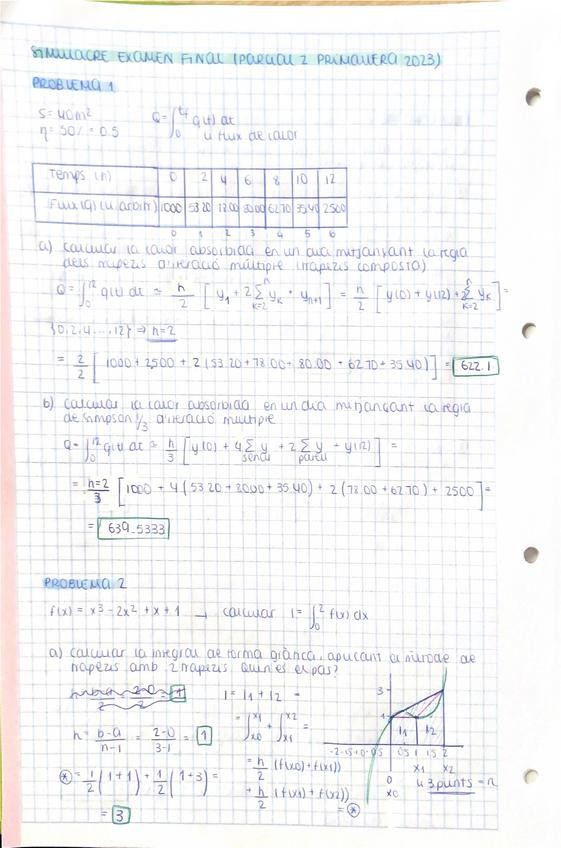 SIMULACRE EXAMEN FINAL (PARCIAL 2 PRIMAVERA 2023)
PROBLEMA 1
S = 40m²
η = 50% = 0.5
Q = ∫₀^tf q(t) dt
↳ flux de calor
Temps (h) 0 2 4 6 8 10 12
Flux (q) (u arbitr) 1000 53.20 78.00 80.00 62.70 35.40 2500
0 1 2 3 4 5 6
a) calcular la calor absorbida en un dia mitjançant la regla
dels trapezis d'iteració múltiple (trapezis composta)
Q = ∫₀^12 q(t) dt ≃ h/2 [y₁ + 2 Σ_{k=2}^n y_k + y_{n+1}] = h/2 [y(0) + y(12) + 2 Σ_{k=2}^n y_k] =
{0,2,4,...,12} ⇒ h=2
= 2/2 [1000 + 2500 + 2(53.20 + 78.00 + 80.00 + 62.70 + 35.40)] = 622.1
b) calcular la calor absorbida en un dia mitjançant la regla
de simpson 1/3 d'iteració múltiple
Q = ∫₀^12 q(t) dt ≃ h/3 [y(0) + 4 Σ y senars + 2 Σ y parell + y(12)] =
= h=2/3 [1000 + 4(53.20 + 80.00 + 35.40) + 2(78.00 + 62.70) + 2500] =
= 639.5333
PROBLEMA 2
f(x) = x³ - 2x² + x + 1 → calcular I = ∫₀² f(x) dx
a) calcular la integral de forma gràfica, aplicant el mètode de
trapezis amb 2 trapezis. Quin és el pas?
I = I₁ + I₂ =
= ∫_{x0}^{x1} + ∫_{x1}^{x2} =
h = b-a/n-1 = 2-0/3-1 = 1
= h/2 (f(x0) + f(x1))
+ h/2 (f(x1) + f(x2))
= ⊛
⊛ = 1/2 (1+1) + 1/2 (1+3) =
= 3
3
1
I1 I2
-2 -1.5 -1 0 -0.5 0.5 1 1.5 2
x1 x2
0
x0
↳ 3 punts = n